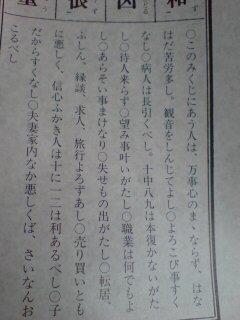 凶
〇このみくじにあう人は、万事心のまゝならず、はな
はだ苦労多し。観音をしんじてよし〇よろこび事すく
なし〇病人は長引くべし。十中八九は本復かないがた
し〇待人来らず〇望み事叶いがたし〇職業は何でもよ
し〇あらそい事まけなり〇失せもの出がたし〇転居、
ふしん、縁談、求人、旅行よろずあし〇売り買いとも
に悪しく、信心ふかき人は十に一二は利あるべし〇子
だからすくなし〇夫妻家内なか悪しくば、さいなんお
こるべし